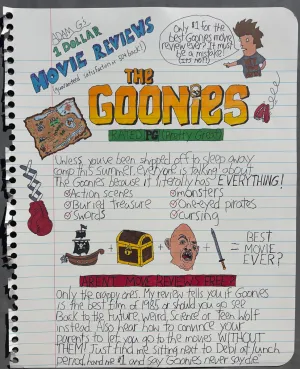 ADAM G's
1 DOLLAR
MOVIE REVIEWS
(guaranteed satisfaction or $ back!)
Only $1 for the
best Goonies movie
review ever? It must
be a mistake!
(it's not!)
THE
GOONIES
RATED PG (Pretty Great)
Unless you've been shipped off to sleep away
camp this summer. Everyone is talking about
The Goonies because it literally has EVERYTHING!
Action scenes
monsters
Buried treasure
One-eyed pirates
Swords
cursing
+ + + = BEST
MOVIE
EVER?
AREN'T MOVIE REVIEWS FREE?
Only the crappy ones. My review tells you if Goonies
is the best film of 1985 or should you go see
Back to the Future, Weird Science or Teen Wolf
instead. Also hear how to convince your
parents to let you go to the movies WITHOUT
THEM! Just find me sitting next to Debi at lunch
period, hand me $1 and say Goonies never say die